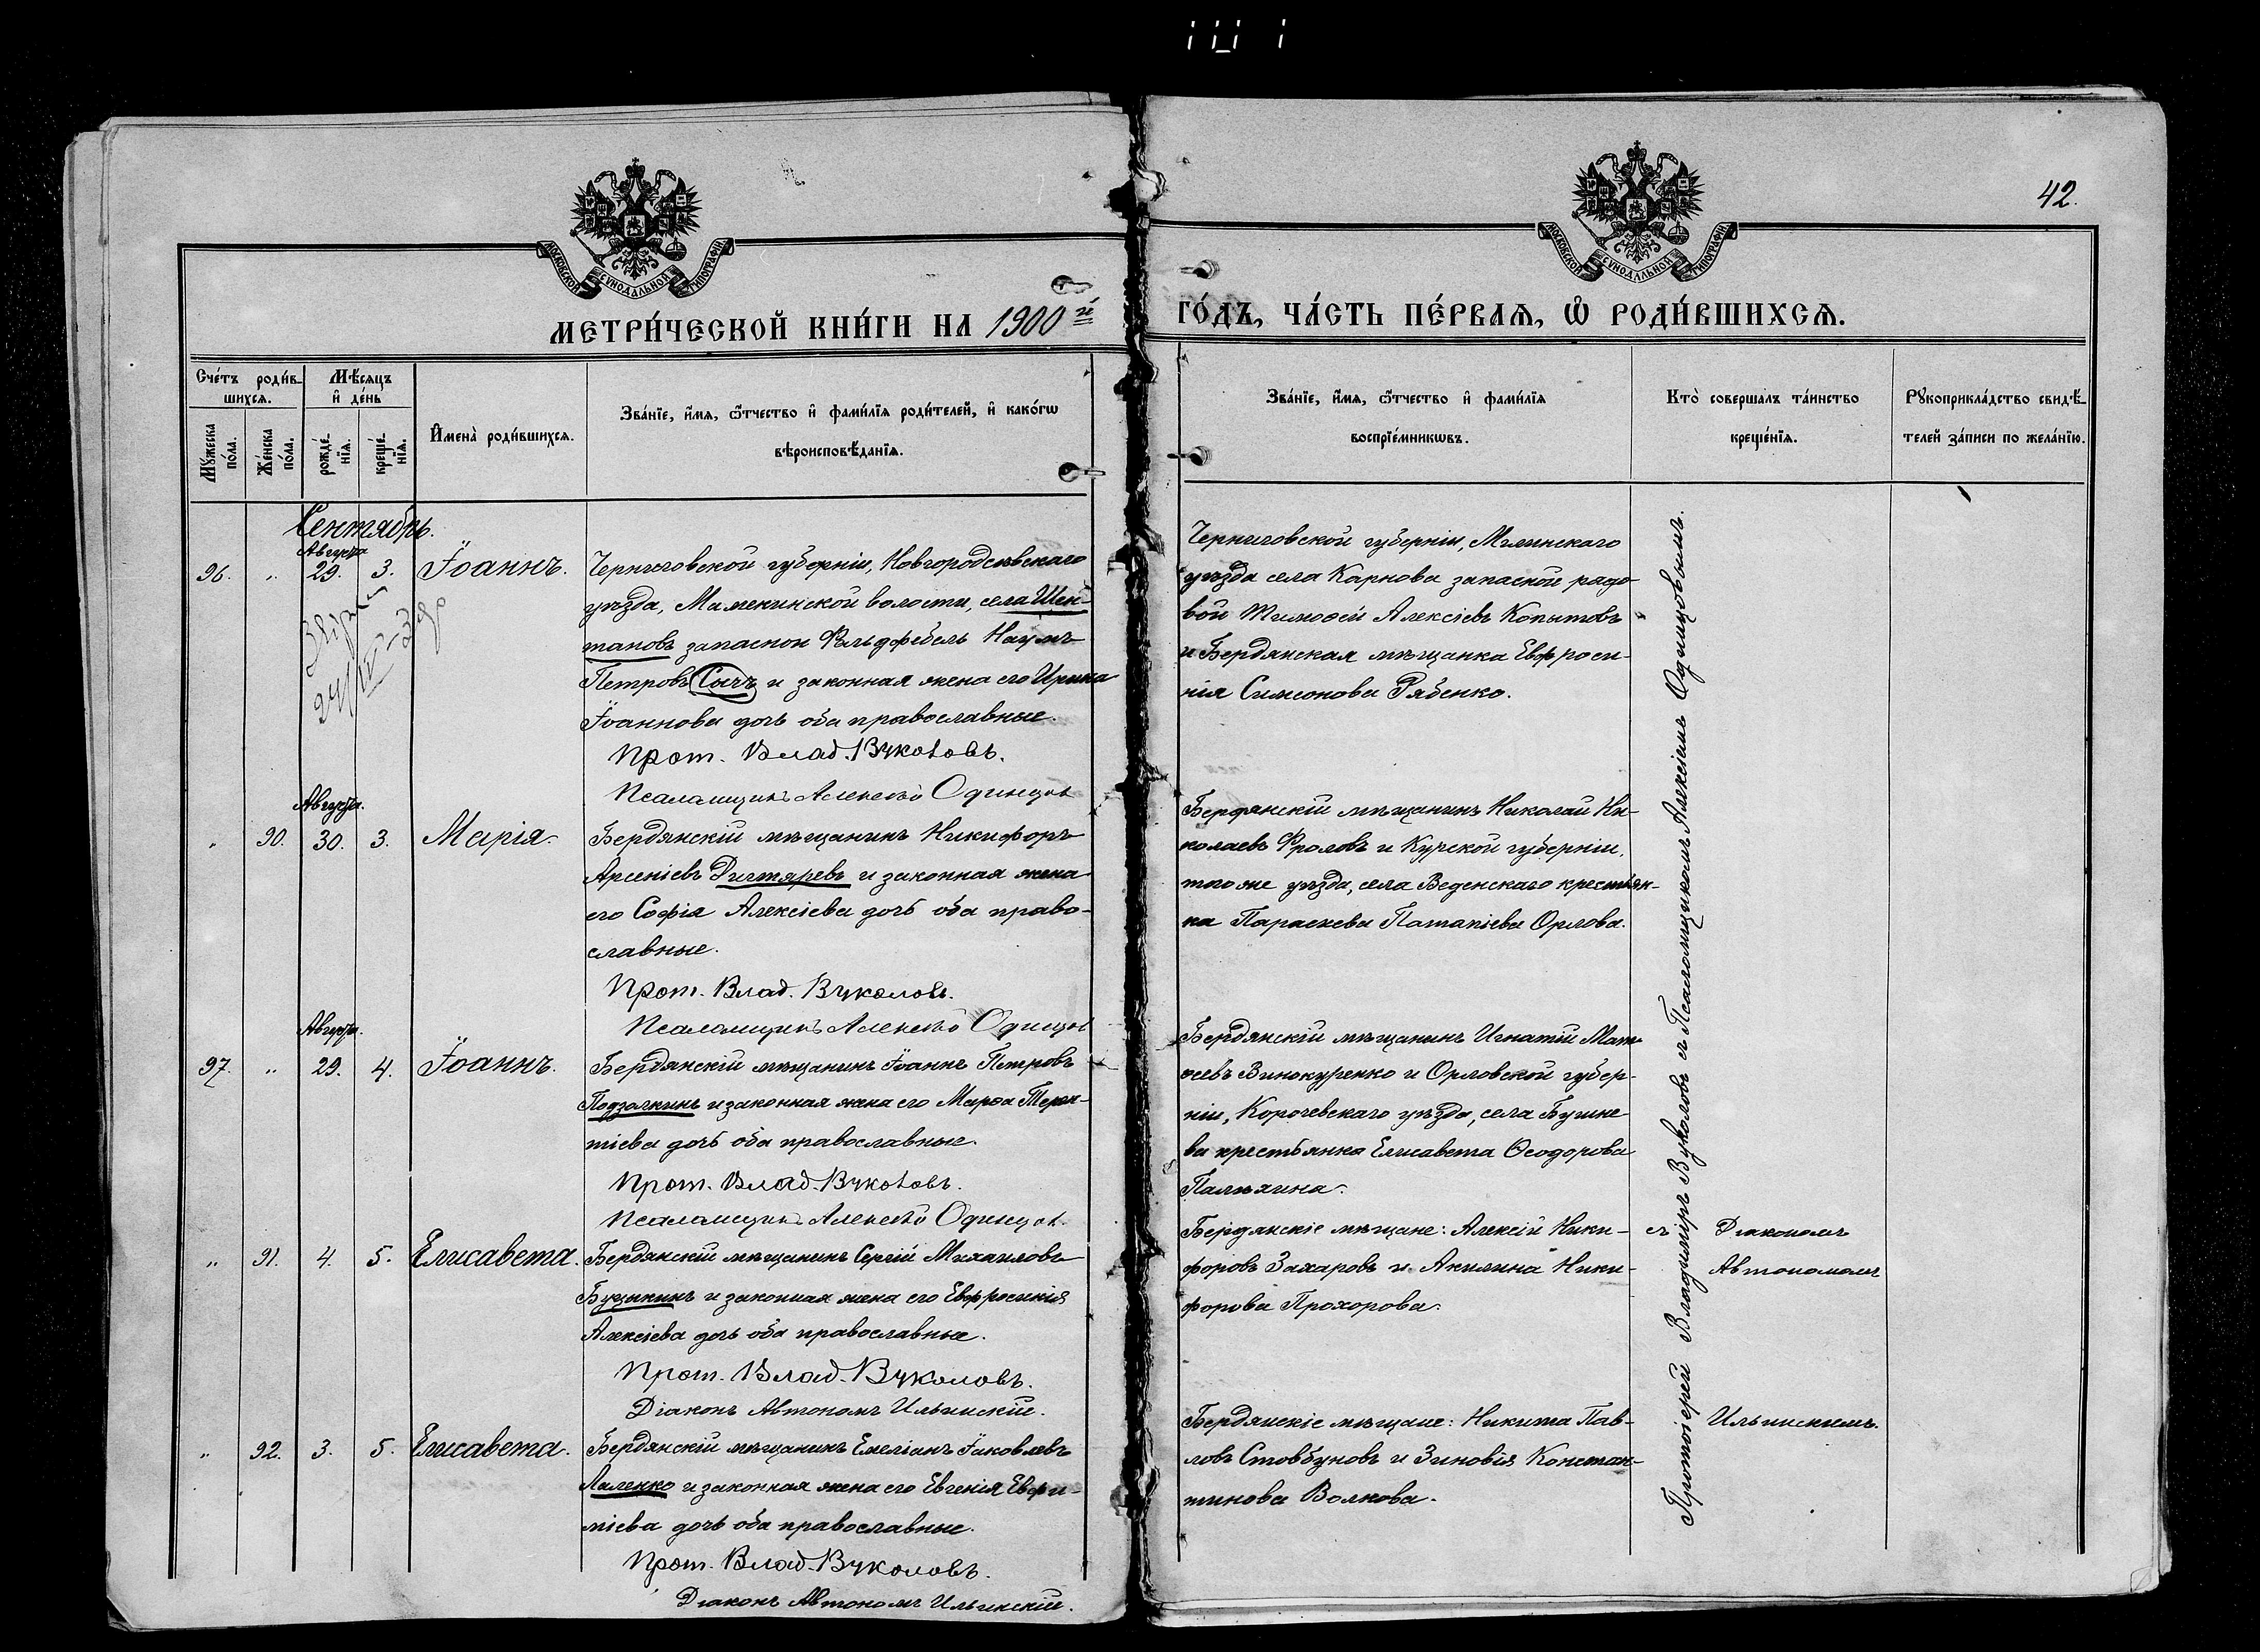 42.
МОСКОВСКОЙ СѴНОДАЛЬНОЙ ТИПОГРАФІИ
МОСКОВСКОЙ СѴНОДАЛЬНОЙ ТИПОГРАФІИ
МЕТРИ́ЧЕСКОЙ КНИ́ГИ НА 1900й
ГО́ДЪ, ЧА́СТЬ ПЕ́РВАѦ, Ѡ҆ РОДИ́ВШИХСѦ.
Сче́тъ роди́в-
шихсѧ.
Мѣ́сѧцъ
и҆ де́нь
Мꙋ́жеска
по́ла.
Же́нска
по́ла.
рожде́-
нїѧ.
креще́-
нїѧ.
И҆мена̀ роди́вшихсѧ.
Зва́нїе, и҆́мѧ, ѻ҆́тчество и҆ фами́лїѧ роди́телей, и҆ како́гѡ
вѣроисповѣ́данїѧ.
Зва́нїе, и҆́мѧ, ѻ҆́тчество и҆ фами́лїѧ
воспрїе́мникѡвъ.
Кто̀ соверша́лъ та́инство
креще́нїѧ.
Рꙋкоприкла́дство свидѣ́-
телей за́писи по жела́нїю.
Сентябрь.
Августа
96. " 29. 3. Іоаннъ.
Черниговской губерніи, Новгородсѣвскаго
уѣзда, Мамекинской волости, села Шеп-
таковъ запасной Фельдфебель Наумъ
Петровъ Сычъ и законная жена его Ирина
Іоаннова дочь оба православные.
Прот. Влад. Вуколовъ.
Псаломщикъ Алексѣй Одинцов
Черниговской губерніи, Мглинскаго
уѣзда села Карнова запасной рядо-
вой Тимоѳей Алексіевъ Копытовъ
и Бердянская мѣщанка Евфроси-
нія Симеонова Рябенко.
Августа.
" 90. 30. 3. Марія.
Бердянскій мѣщанинъ Никифоръ
Арсеніевъ Дигтяревъ и законная жена
его Софія Алексіева дочь оба право-
славные.
Прот. Влад. Вуколовъ.
Псаломщикъ Алексѣй Одинцов
Бердянскій мѣщанинъ Николай Ни-
колаевъ Фроловъ и Курской губерніи,
того же уѣзда, села Веденскаго крестьян-
ка Параскева Потапіева Орлова.
Августа.
97. " 29. 4. Іоаннъ.
Бердянскій мѣщанинъ Іоаннъ Петровъ
Подзолкинъ и законная жена его Марѳа Терен-
тіева дочь оба православные.
Прот. Влад. Вуколовъ.
Псаломщикъ Алексѣй Одинцов.
Бердянскій мѣщанинъ Игнатій Мат-
ѳеевъ Винокуренко и Орловской губер-
ніи, Корочевскаго уѣзда, села Бугне
ва крестьянка Елисавета Ѳеодорова
" 91. 4. 5. Елисавета.
Бердянскій мѣщанинъ Сергій Михаиловъ
Буцыкинъ и законная жена его Евфросинія
Алексіева дочь оба православные.
Прот. Влад. Вуколовъ.
Діаконъ Автономъ Ильинскій.
Бердянскіе мѣщане: Алексій Ники-
форовъ Захаровъ и Акилина Ники-
форова Прохорова.
съ Діакономъ
Автономомъ
" 92. 3. 5. Елисавета.
Бердянскій мѣщанинъ Емеліанъ Іаковлевъ
Ляленко и законная жена его Евгенія Евфи-
міева дочь оба православные.
Прот. Влад. Вуколовъ.
Діаконъ Автономъ Ильинскій.
Бердянскіе мѣщане: Никита Пав-
ловъ Стовбуновъ и Зиновія Констан-
тинова Волкова.
Ильинскимъ.
Протоіерей Владиміръ Вуколовъ съ Псаломщикомъ Алексіемъ Одинцовымъ.